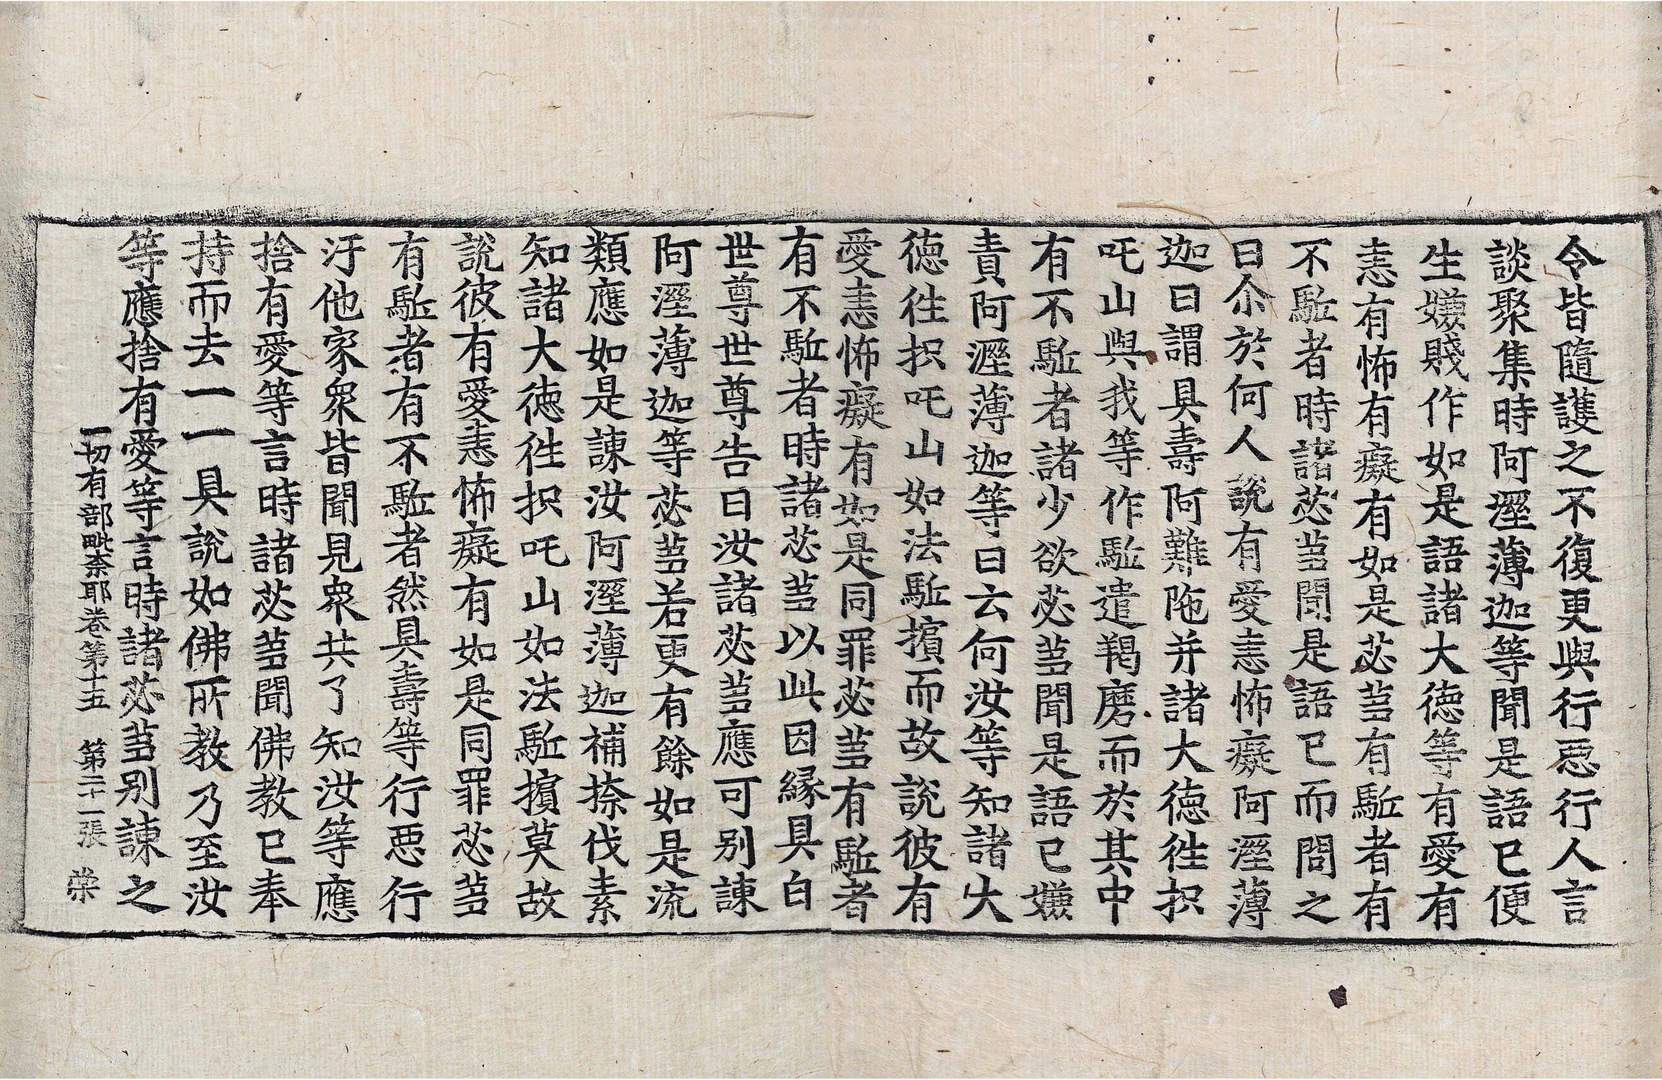 令皆隨護之不復更與行惡行人言
談聚集時阿溼薄迦等聞是語已便
生嫌賤作如是語諸大德等有愛有
恚有怖有癡有如是苾芻有駈者有
不駈者時諸苾芻聞是語已而問之
曰尒於何人說有愛恚怖癡阿溼薄
迦曰謂具壽阿難陁并諸大德往枳
吒山與我等作駈遣羯磨而於其中
有不駈者諸少欲苾芻聞是語已嫌
責阿溼薄迦等曰云何汝等知諸大
德往枳吒山如法駈擯而故說彼有
愛恚怖癡有如是同罪苾芻有駈者
有不駈者時諸苾芻以此因緣具白
世尊世尊告曰汝諸苾芻應可別諫
阿溼薄迦等苾芻若更有餘如是流
類應如是諫汝阿溼薄迦補捺伐素
知諸大德往枳吒山如法駈擯莫故
說彼有愛恚怖癡有如是同罪苾芻
有駈者有不駈者然具壽等行惡行
汙他家衆皆聞見衆共了知汝等應
捨有愛等言時諸苾芻聞佛教已奉
持而去一一具說如佛所教乃至汝
等應捨有愛等言時諸苾芻別諫之
一切有部毗柰耶卷第十五 第二十一張 棠